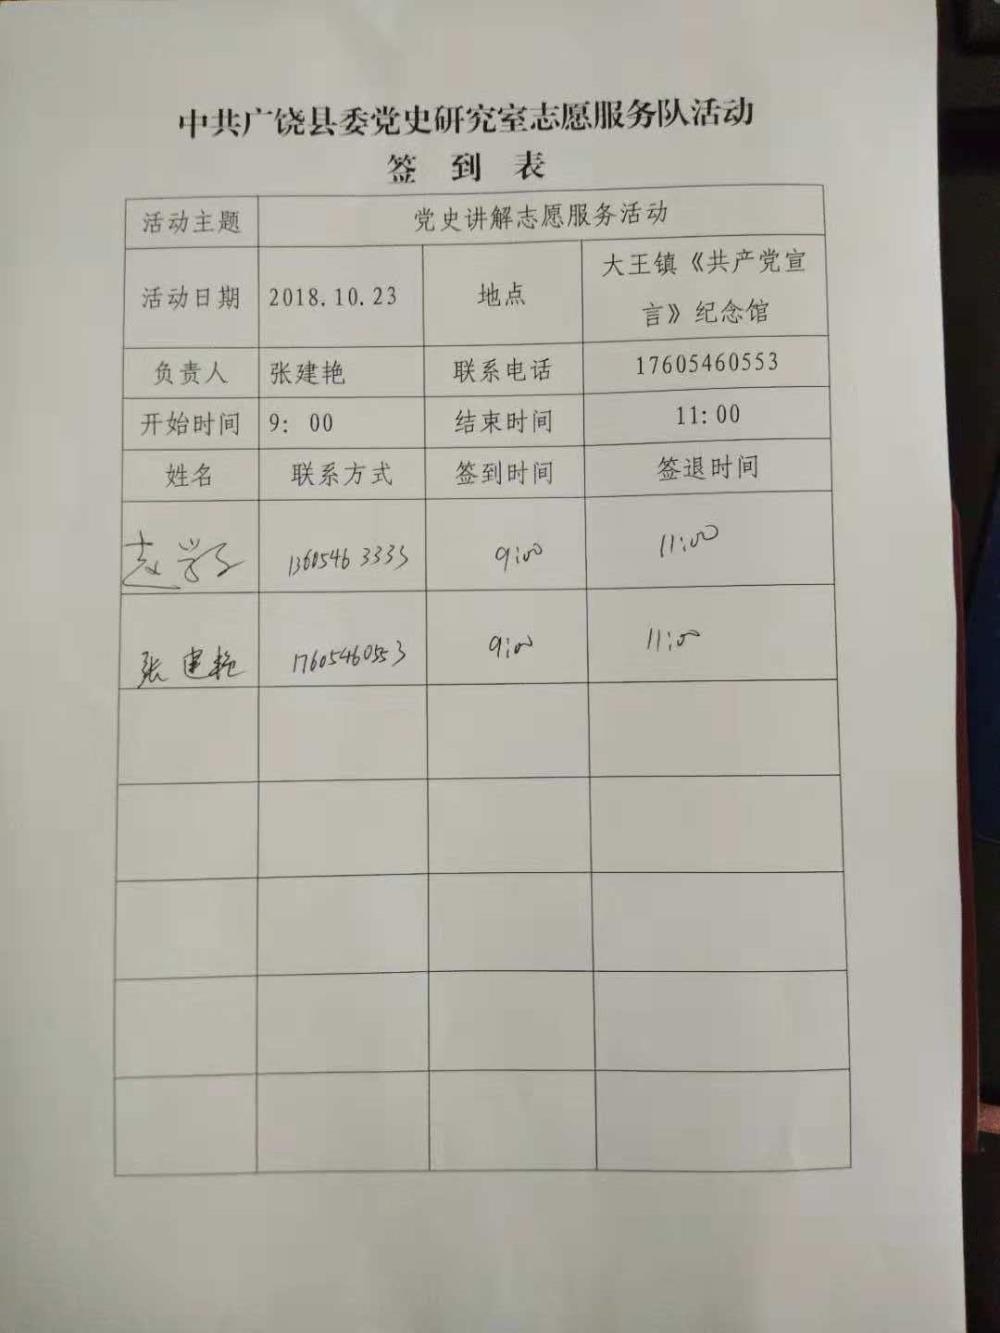 中共广饶县委党史研究室志愿服务队活动
签 到 表
活动主题 党史讲解志愿服务活动
活动日期 2018.10.23 地点 大王镇《共产党宣
言》纪念馆
负责人 张建艳 联系电话 17605460553
开始时间 9: 00 结束时间 11:00
姓名 联系方式 签到时间 签退时间
赵 9:00 11:00
张建艳 17605460553 9:00 11:00